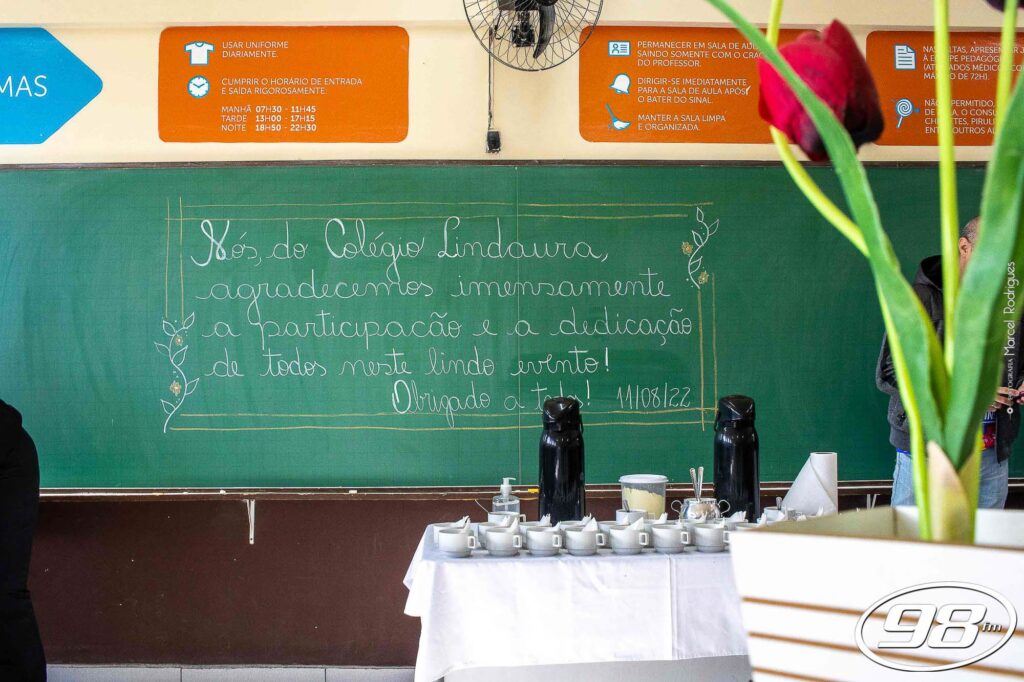 MAS
USAR UNIFORME
DIARIAMENTE.
CUMPRIR O HORÁRIO DE ENTRADA
E SAÍDA RIGOROSAMENTE:
MANHÃ 07H30 - 11H45
TARDE 13H00 - 17H15
NOITE 18H50 - 22H30
PERMANECER EM SALA DE AU
SAINDO SOMENTE COM O CRAC
DO PROFESSOR.
DIRIGIR-SE IMEDIATAMENTE
PARA A SALA DE AULA APÓS
O BATER DO SINAL.
MANTER A SALA LIMPA
E ORGANIZADA.
NAS FALTAS, APRESENTAR J
À EQUIPE PEDAGÓGI
(ATESTADOS MÉDICOS COM
MÁXIMO DE 72H).
NÃO PERMITIDO,
O CONSU
CHICLETES, PIRULI
ENTRE OUTROS AL
Nós, do Colégio Lindaura,
agradecemos imensamente
a participacão e a dedicação
de todos neste lindo evento!
Obrigado a todos! 11/08/22
FOTOGRAFIA Marcel Rodrigues
98 fm